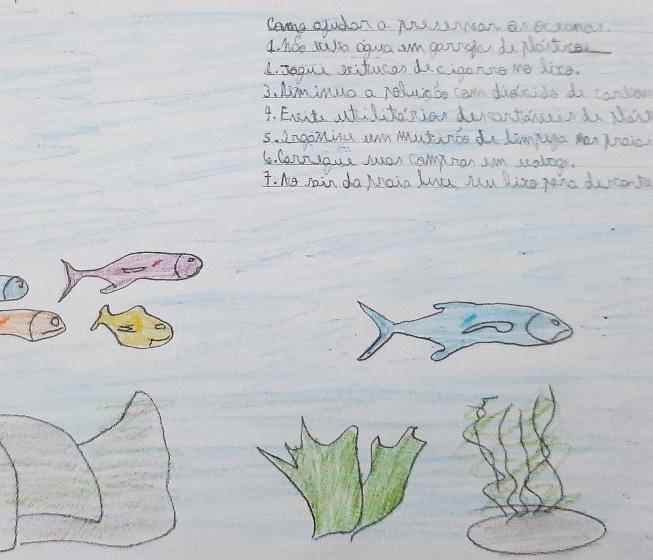 Como ajudar a preservar os oceanos.
1. Não beba água em garrafas de plástico
2. Jogue bitucas de cigarro no lixo.
3. Diminua a poluição com dióxido de carbon
4. Evite utilitários descartáveis de plást
5. Organize um mutirão de limpeza nas praia
6. Carregue suas compras em ecobag.
7. Ao sair da praia leve seu lixo para descarta